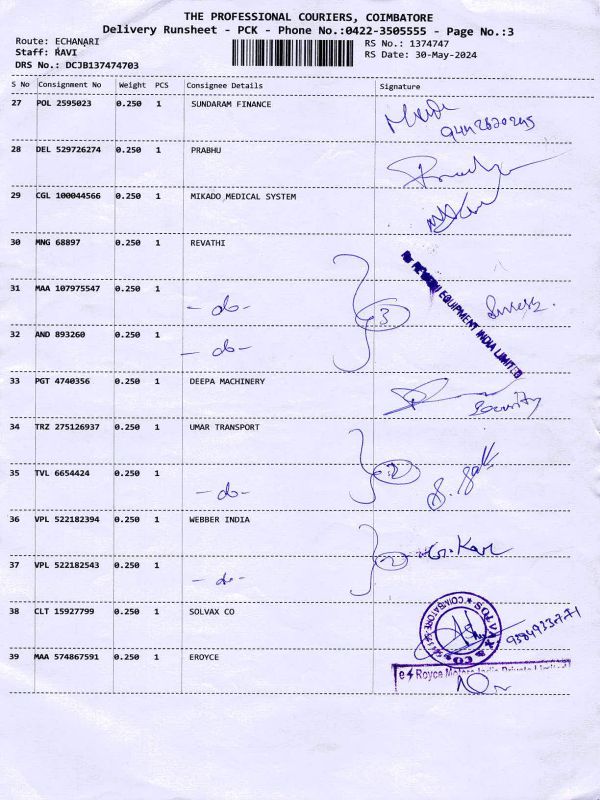 THE PROFESSIONAL COURIERS, COIMBATORE
Delivery Runsheet - PCK - Phone No.:0422-3505555 - Page No.:3
Route: ECHANARI
RS No.: 1374747
Staff: RAVI
RS Date: 30-May-2024
DRS No.: DCJB137474703
S No Consignment No Weight PCS Consignee Details Signature
27 POL 2595023 0.250 1 SUNDARAM FINANCE
28 DEL 529726274 0.250 1 PRABHU
29 CGL 100044566 0.250 1 MIKADO MEDICAL SYSTEM
30 MNG 68897 0.250 1 REVATHI
For REVATHI EQUIPMENT INDIA LIMITED
31 MAA 107975547 0.250 1 -do-
3
32 AND 893260 0.250 1 -do-
33 PGT 4740356 0.250 1 DEEPA MACHINERY
Security
34 TRZ 275126937 0.250 1 UMAR TRANSPORT
2
35 TVL 6654424 0.250 1 -do-
36 VPL 522182394 0.250 1 WEBBER INDIA
2 G.Kar
37 VPL 522182543 0.250 1 -do-
38 CLT 15927799 0.250 1 SOLVAX CO
39 MAA 574867591 0.250 1 EROYCE
e Royce Motors India Private Limited